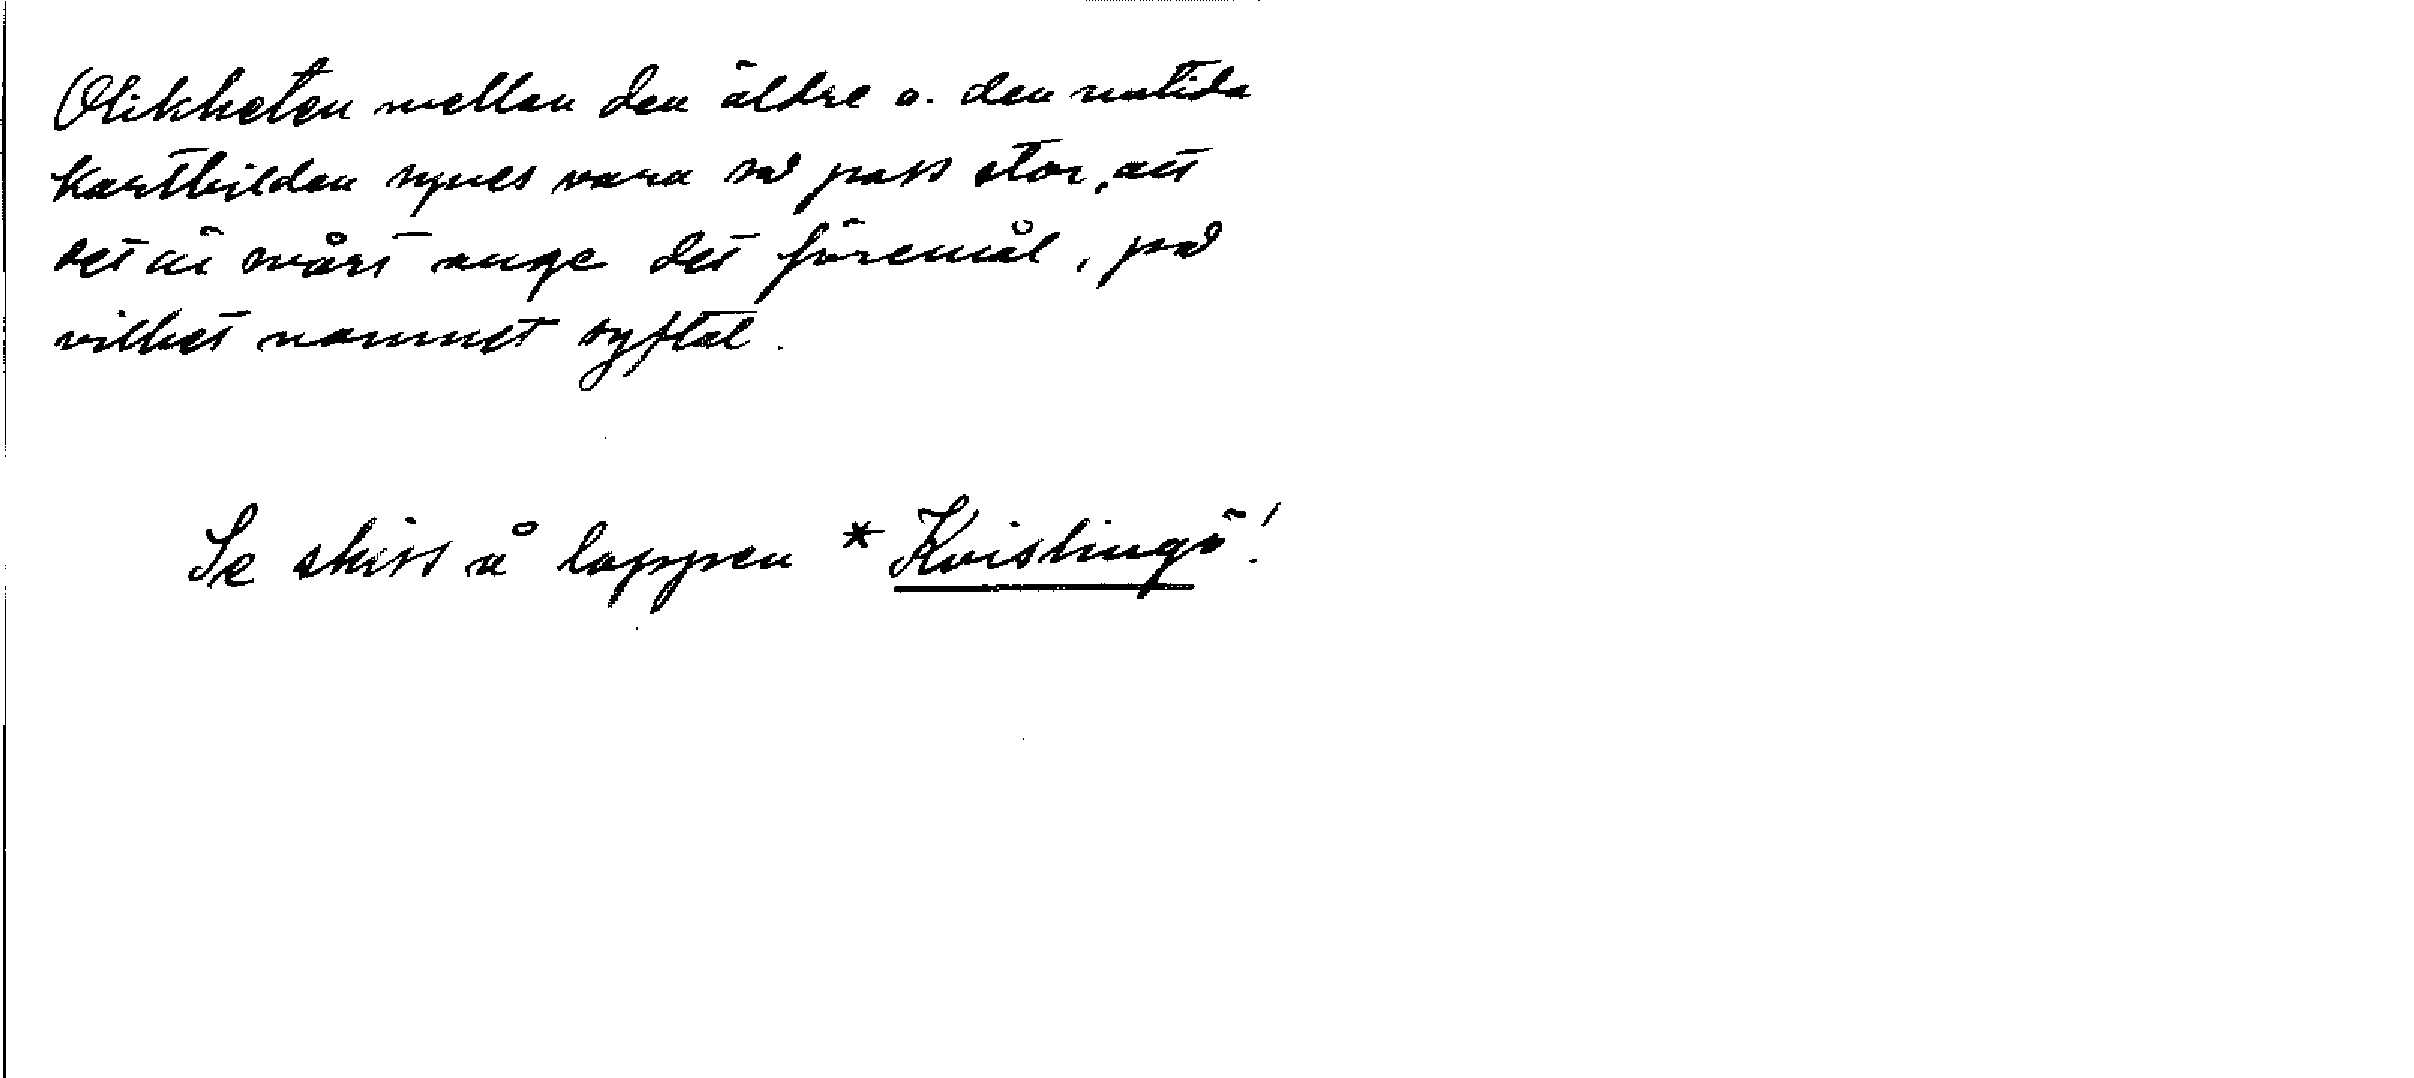 Olikheten mellan den äldre o. den nutida
kartbilden synes vara så pass stor, att
det är svårt ange det föremål, på
vilket namnet syftat.
Se skiss å lappen * Kvislingö!